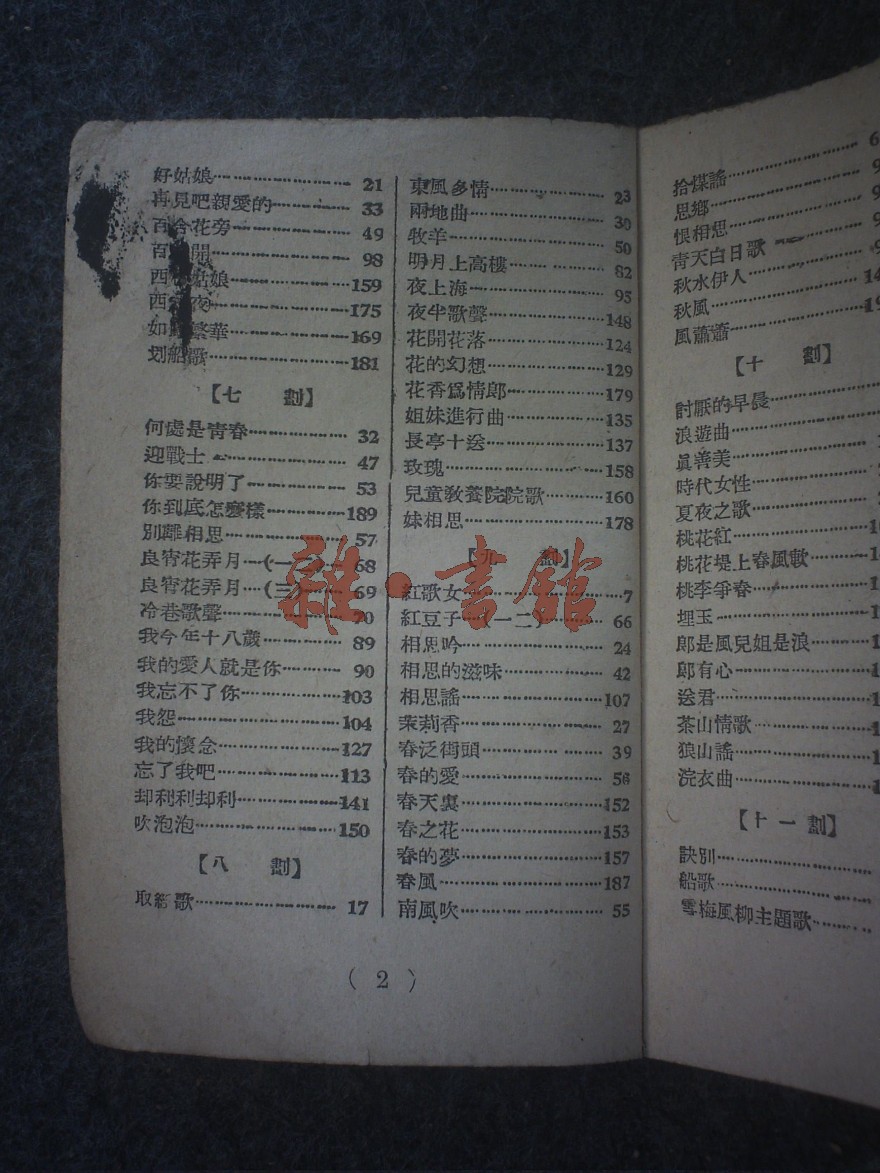 好姑娘 21
再見吧親愛的 33
百合花旁 49
百 開 98
西 姑娘 159
西 夜 175
如 繁華 169
划船歌 181
【七 劃】
何處是靑春 32
迎戰士 47
你要說明了 53
你到底怎麼樣 189
別離相思 57
良宵花弄月(一二) 68
良宵花弄月(三) 69
冷巷歌聲 70
我今年十八歲 89
我的愛人就是你 90
我忘不了你 103
我怨 104
我的懷念 127
忘了我吧 113
却利利却利 141
吹泡泡 150
【八 劃】
取締歌 17
東風多情 23
兩地曲 30
牧羊 50
明月上高樓 82
夜上海 95
夜半歌聲 148
花開花落 124
花的幻想 129
花香爲情郎 179
姐妹進行曲 135
長亭十送 137
玫瑰 158
兒童敎養院院歌 160
妹相思 178
【九 劃】
紅歌女 7
紅豆子(一二) 66
相思吟 24
相思的滋味 42
相思謠 107
茉莉香 27
春泛街頭 39
春的愛 58
春天裏 152
春之花 153
春的夢 157
春風 187
南風吹 55
( 2 )
拾煤謠
思鄉
恨相思
靑天白日歌
秋水伊人
秋風
風蕭蕭
【十 劃】
討厭的早晨
浪遊曲
眞善美
時代女性
夏夜之歌
桃花紅
桃花堤上春風歌
桃李爭春
埋玉
郞是風兒姐是浪
郞有心
送君
茶山情歌
狼山謠
浣衣曲
【十一劃】
訣別
船歌
雪梅風柳主題歌
雜·書館